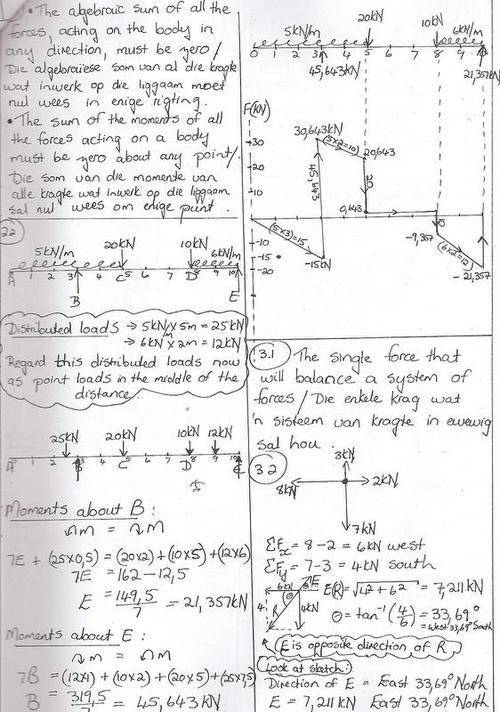 • The algebraic sum of all the
forces, acting on the body in
any direction, must be zero /
Die algebraïese som van al die kragte
wat inwerk op die liggaam moet
nul wees in enige rigting.
• The sum of the moments of all
the forces acting on a body
must be zero about any point /
Die som van die momente van
alle kragte wat inwerk op die liggaam
sal nul wees om enige punt.
2.2
5kN/m 20kN 10kN 6kN/m
A 1 2 3 4 C 5 6 7 D 8 9 10
B E
Distributed loads → 5kN/m x 5m = 25kN
→ 6kN/m x 2m = 12kN
Regard this distributed loads now
as point loads in the middle of the
distance.
25kN 20kN 10kN 12kN
A 1 2 3 4 C 5 6 7 D 8 9 10
B E
Moments about B:
m = m
7E + (25x0,5) = (20x2) + (10x5) + (12x6)
7E = 162 - 12,5
E = 149,5/7 = 21,357kN
Moments about E:
m = m
7B = (12x1) + (10x2) + (20x5) + (25x7,5)
B = 319,5/7 = 45,643kN
20kN
5kN/m 10kN 6kN/m
0 1 2 3 4 5 6 7 8 9
45,643kN 21,357kN
F(kN)
30 30,643kN (5x2=10) 20,643
20
10 45,643 20
0,643
-10 (5x3)=15 -9,357 10
-15 -15kN (6x2=12)
-20 -21,357
3.1 The single force that
will balance a system of
forces / Die enkele krag wat
'n sisteem van kragte in ewewig
sal hou.
3.2
3kN
8kN 2kN
7kN
ΣFx = 8-2 = 6kN west
ΣFy = 7-3 = 4kN south
6kN E E(R) = √4²+6² = 7,211kN
4 R θ 4kN θ = tan⁻¹(4/6) = 33,69°
= West 33,69° South
E is opposite direction of R
Look at sketch:
Direction of E = East 33,69° North
E = 7,211kN East 33,69° North